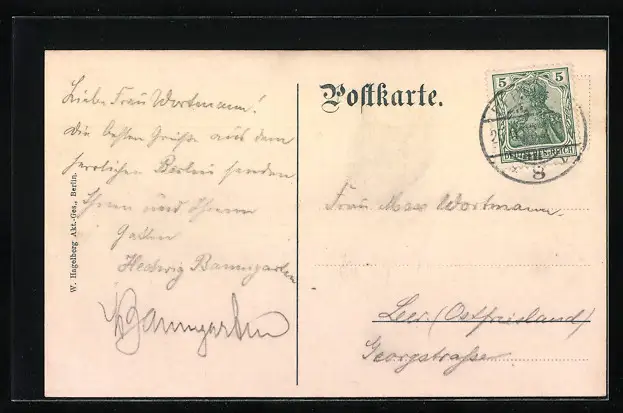 Liebe Frau Wortmann!
die besten Grüße aus dem
herrlichen Berlin senden
Ihnen und Ihrem
Gatten
Hedwig Baumgarten
Baumgarten
W. Hagelberg Akt.-Ges., Berlin.
Postkarte.
5 5
DEUTSCHES REICH
8
Frau Max Wortmann.
Leer. (Ostfriesland)
Georgstraße